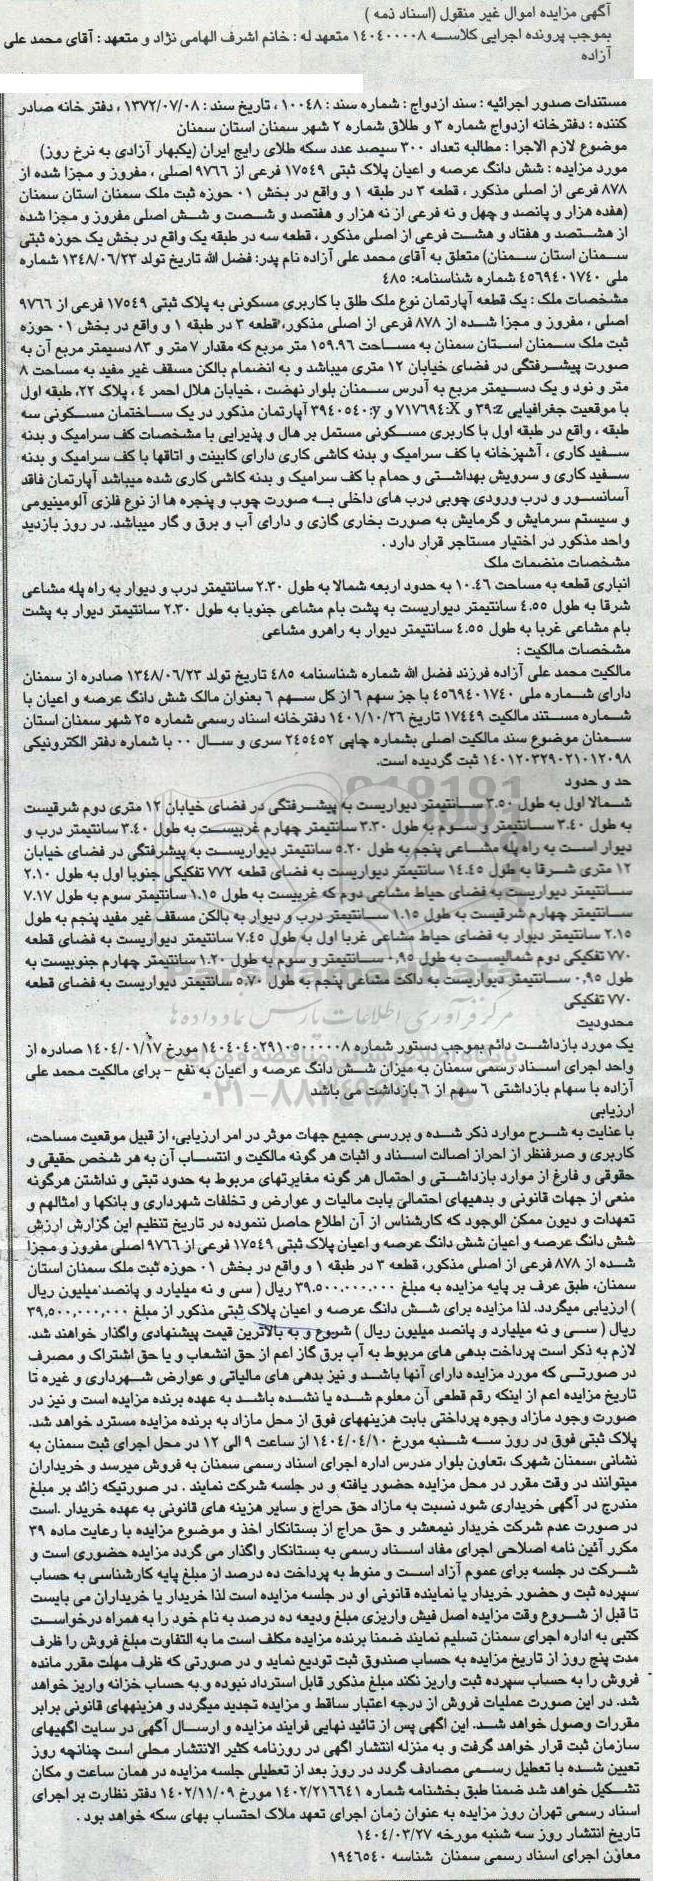 آگهی مزایده اموال غیر منقول (اسناد ذمه )
بموجب پرونده اجرایی کلاسه ۱۴۰۴۰۰۰۰۸ متعهد له : خانم اشرف الهامی نژاد و متعهد : آقای محمد علی
آزاده
مستندات صدور اجرائیه : سند ازدواج : شماره سند : ۱۰۰۴۸ ، تاریخ سند : ۱۳۷۲/۰۷/۰۸ ، دفتر خانه صادر
کننده : دفترخانه ازدواج شماره ۳ و طلاق شماره ۲ شهر سمنان استان سمنان
موضوع لازم الاجرا : مطالبه تعداد ۳۰۰ سیصد عدد سکه طلای رایج ایران (یکبهار آزادی به نرخ روز)
مورد مزایده : شش دانگ عرصه و اعیان پلاک ثبتی ۱۷۵۴۹ فرعی از ۹۷۶۶ اصلی ، مفروز و مجزا شده از
۸۷۸ فرعی از اصلی مذکور ، قطعه ۳ در طبقه ۱ و واقع در بخش ۰۱ حوزه ثبت ملک سمنان استان سمنان
(هفده هزار و پانصد و چهل و نه فرعی از نه هزار و هفتصد و شصت و شش اصلی مفروز و مجزا شده
از هشتصد و هفتاد و هشت فرعی از اصلی مذکور ، قطعه سه در طبقه یک واقع در بخش یک حوزه ثبتی
سمنان استان سمنان) متعلق به آقای محمد علی آزاده نام پدر: فضل الله تاریخ تولد ۱۳۴۸/۰۶/۲۳ شماره
ملی ۴۵۶۹۴۰۱۷۴۰ شماره شناسنامه: ۴۸۵
مشخصات ملک : یک قطعه آپارتمان نوع ملک طلق با کاربری مسکونی به پلاک ثبتی ۱۷۵۴۹ فرعی از ۹۷۶۶
اصلی ، مفروز و مجزا شده از ۸۷۸ فرعی از اصلی مذکور، قطعه ۳ در طبقه ۱ و واقع در بخش ۰۱ حوزه
ثبت ملک سمنان استان سمنان به مساحت ۱۵۹.۹۶ متر مربع که مقدار ۷ متر و ۸۳ دسیمتر مربع آن به
صورت پیشرفتگی در فضای خیابان ۱۲ متری میباشد و به انضمام بالکن مسقف غیر مفید به مساحت ۸
متر و نود و یک دسیمتر مربع به آدرس سمنان بلوار نهضت ، خیابان هلال احمر ۴ ، پلاک ۲۲، طبقه اول
با موقعیت جغرافیایی ۳۹:z و ۷۱۷۶۹۴:X و ۳۹۴۰۵۴۰:y آپارتمان مذکور در یک ساختمان مسکونی سه
طبقه ، واقع در طبقه اول با کاربری مسکونی مستمل بر هال و پذیرایی با مشخصات کف سرامیک و بدنه
سفید کاری ، آشپزخانه با کف سرامیک و بدنه کاشی کاری دارای کابینت و اتاقها با کف سرامیک و بدنه
سفید کاری و سرویش بهداشتی و حمام با کف سرامیک و بدنه کاشی کاری شده میباشد آپارتمان فاقد
آسانسور و درب ورودی چوبی درب های داخلی به صورت چوب و پنجره ها از نوع فلزی آلومینیومی
و سیستم سرمایش و گرمایش به صورت بخاری گازی و دارای آب و برق و گاز میباشد. در روز بازدید
واحد مذکور در اختیار مستاجر قرار دارد .
مشخصات منضمات ملک
انباری قطعه به مساحت ۱۰.۴۶ به حدود اربعه شمالا به طول ۲.۳۰ سانتیمتر درب و دیوار به راه پله مشاعی
شرقا به طول ۴.۵۵ سانتیمتر دیواریست به پشت بام مشاعی جنوبا به طول ۲.۳۰ سانتیمتر دیوار به پشت
بام مشاعی غربا به طول ۴.۵۵ سانتیمتر دیوار به راهرو مشاعی
مشخصات مالکیت :
مالکیت محمد علی آزاده فرزند فضل الله شماره شناسنامه ۴۸۵ تاریخ تولد ۱۳۴۸/۰۶/۲۳ صادره از سمنان
دارای شماره ملی ۴۵۶۹۴۰۱۷۴۰ با جز سهم ۶ از کل سهم ۶ بعنوان مالک شش دانگ عرصه و اعیان با
شماره مستند مالکیت ۱۷۴۴۹ تاریخ ۱۴۰۱/۱۰/۲۶ دفترخانه اسناد رسمی شماره ۲۵ شهر سمنان استان
سمنان موضوع سند مالکیت اصلی بشماره چاپی ۲۴۵۴۵۲ سری و سال ۰۰ با شماره دفتر الکترونیکی
۱۴۰۱۲۰۳۲۹۰۲۱۰۱۲۰۹۸ ثبت گردیده است.
حد و حدود
شمالا اول به طول ۳.۵۰ سانتیمتر دیواریست به پیشرفتگی در فضای خیابان ۱۲ متری دوم شرقیست
به طول ۳.۴۰ سانتیمتر و سوم به طول ۳.۳۰ سانتیمتر چهارم غربیست به طول ۳.۴۰ سانتیمتر درب و
دیوار است به راه پله مشاعی پنجم به طول ۵.۲۰ سانتیمتر دیواریست به پیشرفتگی در فضای خیابان
۱۲ متری شرقا به طول ۱۴.۴۵ سانتیمتر دیواریست به فضای قطعه ۷۷۲ تفکیکی جنوبا اول به طول ۲.۱۰
سانتیمتر دیواریست به فضای حیاط مشاعی دوم که غربیست به طول ۱.۱۵ سانتیمتر سوم به طول ۷.۱۷
سانتیمتر چهارم شرقیست به طول ۱.۱۵ سانتیمتر درب و دیوار به بالکن مسقف غیر مفید پنجم به طول
۲.۱۵ سانتیمتر دیوار به فضای حیاط مشاعی غربا اول به طول ۷.۴۵ سانتیمتر دیواریست به فضای قطعه
۷۷۰ تفکیکی دوم شمالیست به طول ۰,۹۵ سانتیمتر و سوم به طول ۱.۲۰ سانتیمتر چهارم جنوبیست به
طول ۰,۹۵ سانتیمتر دیواریست به داکت مشاعی پنجم به طول ۵.۷۰ سانتیمتر دیواریست به فضای قطعه
۷۷۰ تفکیکی
محدودیت
یک مورد بازداشت دائم بموجب دستور شماره ۱۴۰۴۰۴۰۲۹۱۰۵۰۰۰۰۰۸ مورخ ۱۴۰۴/۰۱/۱۷ صادره از
واحد اجرای اسناد رسمی سمنان به میزان شش دانگ عرصه و اعیان به نفع - برای مالکیت محمد علی
آزاده با سهام بازداشتی ۶ سهم از ۶ بازداشت می باشد
ارزیابی
با عنایت به شرح موارد ذکر شده و بررسی جمیع جهات موثر در امر ارزیابی، از قبیل موقعیت مساحت،
کاربری و صرفنظر از احراز اصالت اسناد و اثبات هر گونه مالکیت و انتساب آن به هر شخص حقیقی و
حقوقی و فارغ از موارد بازداشتی و احتمال هر گونه مغایرتهای مربوط به حدود ثبتی و نداشتن هرگونه
منعی از جهات قانونی و بدهیهای احتمالی بابت مالیات و عوارض و تخلفات شهرداری و بانکها و امثالهم و
تعهدات و دیون ممکن الوجود که کارشناس از آن اطلاع حاصل ننموده در تاریخ تنظیم این گزارش ارزش
شش دانگ عرصه و اعیان شش دانگ عرصه و اعیان پلاک ثبتی ۱۷۵۴۹ فرعی از ۹۷۶۶ اصلی مفروز و مجزا
شده از ۸۷۸ فرعی از اصلی مذکور، قطعه ۳ در طبقه ۱ و واقع در بخش ۰۱ حوزه ثبت ملک سمنان استان
سمنان، طبق عرف بر پایه مزایده به مبلغ ۳۹.۵۰۰.۰۰۰.۰۰۰ ریال ( سی و نه میلیارد و پانصد میلیون ریال
) ارزیابی میگردد. لذا مزایده برای شش دانگ عرصه و اعیان پلاک ثبتی مذکور از مبلغ ۳۹,۵۰۰,۰۰۰,۰۰۰
ریال ( سی و نه میلیارد و پانصد میلیون ریال ) شروع و به بالاترین قیمت پیشنهادی واگذار خواهند شد.
لازم به ذکر است پرداخت بدهی های مربوط به آب برق گاز اعم از حق انشعاب و یا حق اشتراک و مصرف
در صورتی که مورد مزایده دارای آنها باشد و نیز بدهی های مالیاتی و عوارض شهرداری و غیره تا
تاریخ مزایده اعم از اینکه رقم قطعی آن معلوم شده یا نشده باشد به عهده برنده مزایده است و نیز در
صورت وجود مازاد وجوه پرداختی بابت هزینههای فوق از محل مازاد به برنده مزایده مسترد خواهد شد.
پلاک ثبتی فوق در روز سه شنبه مورخ ۱۴۰۴/۰۴/۱۰ از ساعت ۹ الی ۱۲ در محل اجرای ثبت سمنان به
نشانی ،سمنان شهرک ،تعاون بلوار مدرس اداره اجرای اسناد رسمی سمنان به فروش میرسد و خریداران
میتوانند در وقت مقرر در محل مزایده حضور یافته و در جلسه شرکت نمایند . در صورتیکه زائد بر مبلغ
مندرج در آگهی خریداری شود نسبت به مازاد حق حراج و سایر هزینه های قانونی به عهده خریدار .است
در صورت عدم شرکت خریدار نیمعشر و حق حراج از بستانکار اخذ و موضوع مزایده با رعایت ماده ۳۹
مکرر آئین نامه اصلاحی اجرای مفاد اسناد رسمی به بستانکار واگذار می گردد مزایده حضوری است و
شرکت در جلسه برای عموم آزاد است و منوط به پرداخت ده درصد از مبلغ پایه کارشناسی به حساب
سپرده ثبت و حضور خریدار یا نماینده قانونی او در جلسه مزایده است لذا خریدار یا خریداران می بایست
تا قبل از شروع وقت مزایده اصل فیش واریزی مبلغ ودیعه ده درصد به نام خود را به همراه درخواست
کتبی به اداره اجرای سمنان تسلیم نمایند ضمنا برنده مزایده مکلف است ما به التفاوت مبلغ فروش را ظرف
مدت پنج روز از تاریخ مزایده به حساب صندوق ثبت تودیع نماید و در صورتی که ظرف مهلت مقرر مانده
فروش را به حساب سپرده ثبت واریز نکند مبلغ مذکور قابل استرداد نبوده و.به حساب خزانه واریز خواهد
شد. در این صورت عملیات فروش از درجه اعتبار ساقط و مزایده تجدید میگردد و هزینههای قانونی برابر
مقررات وصول خواهد شد. این اگهی پس از تائید نهایی فرایند مزایده و ارسال آگهی در سایت اگهیهای
سازمان ثبت قرار خواهد گرفت و به منزله انتشار اگهی در روزنامه کثیر الانتشار محلی است چنانچه روز
تعیین شده با تعطیل رسمی مصادف گردد در روز بعد از تعطیلی جلسه مزایده در همان ساعت و مکان
تشکیل خواهد شد ضمنا طبق بخشنامه شماره ۱۴۰۲/۲۱۶۶۴۱ مورخ ۱۴۰۲/۱۱/۰۹ دفتر نظارت بر اجرای
اسناد رسمی تهران روز مزایده به عنوان زمان اجرای تعهد ملاک احتساب بهای سکه خواهد بود .
تاریخ انتشار روز سه شنبه مورخه ۱۴۰۴/۰۳/۲۷
معاون اجرای اسناد رسمی سمنان شناسه ۱۹۴۶۵۴۰